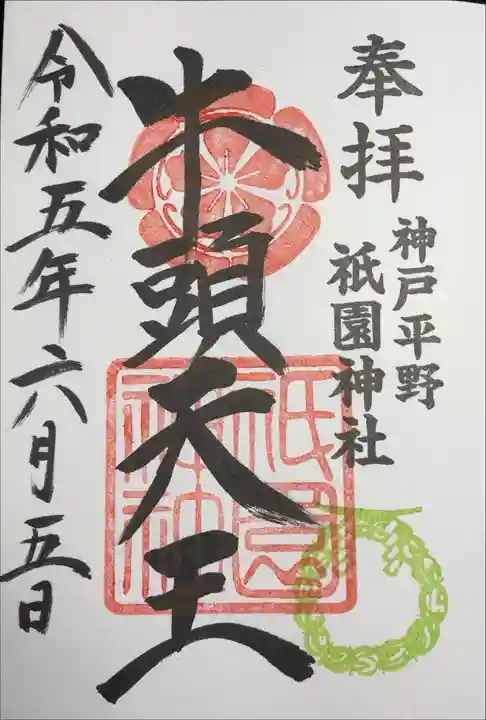 奉拝
神戸平野
祇園神社
牛頭天王
祇園神社
令和五年六月五日